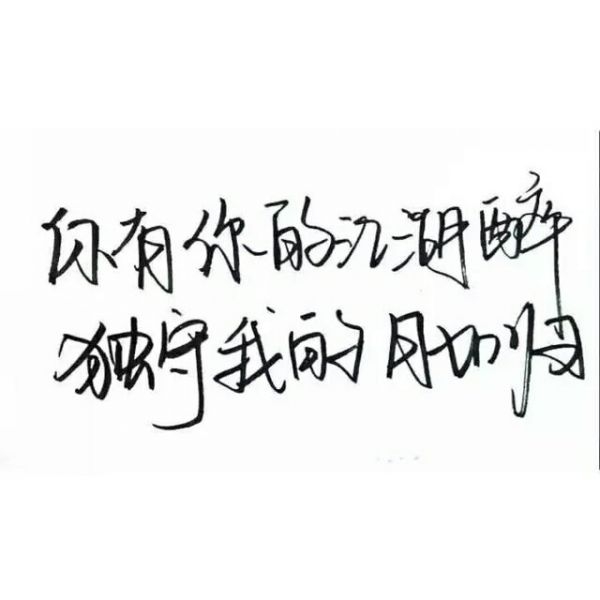 你有你的江湖醉
独守我的月如归